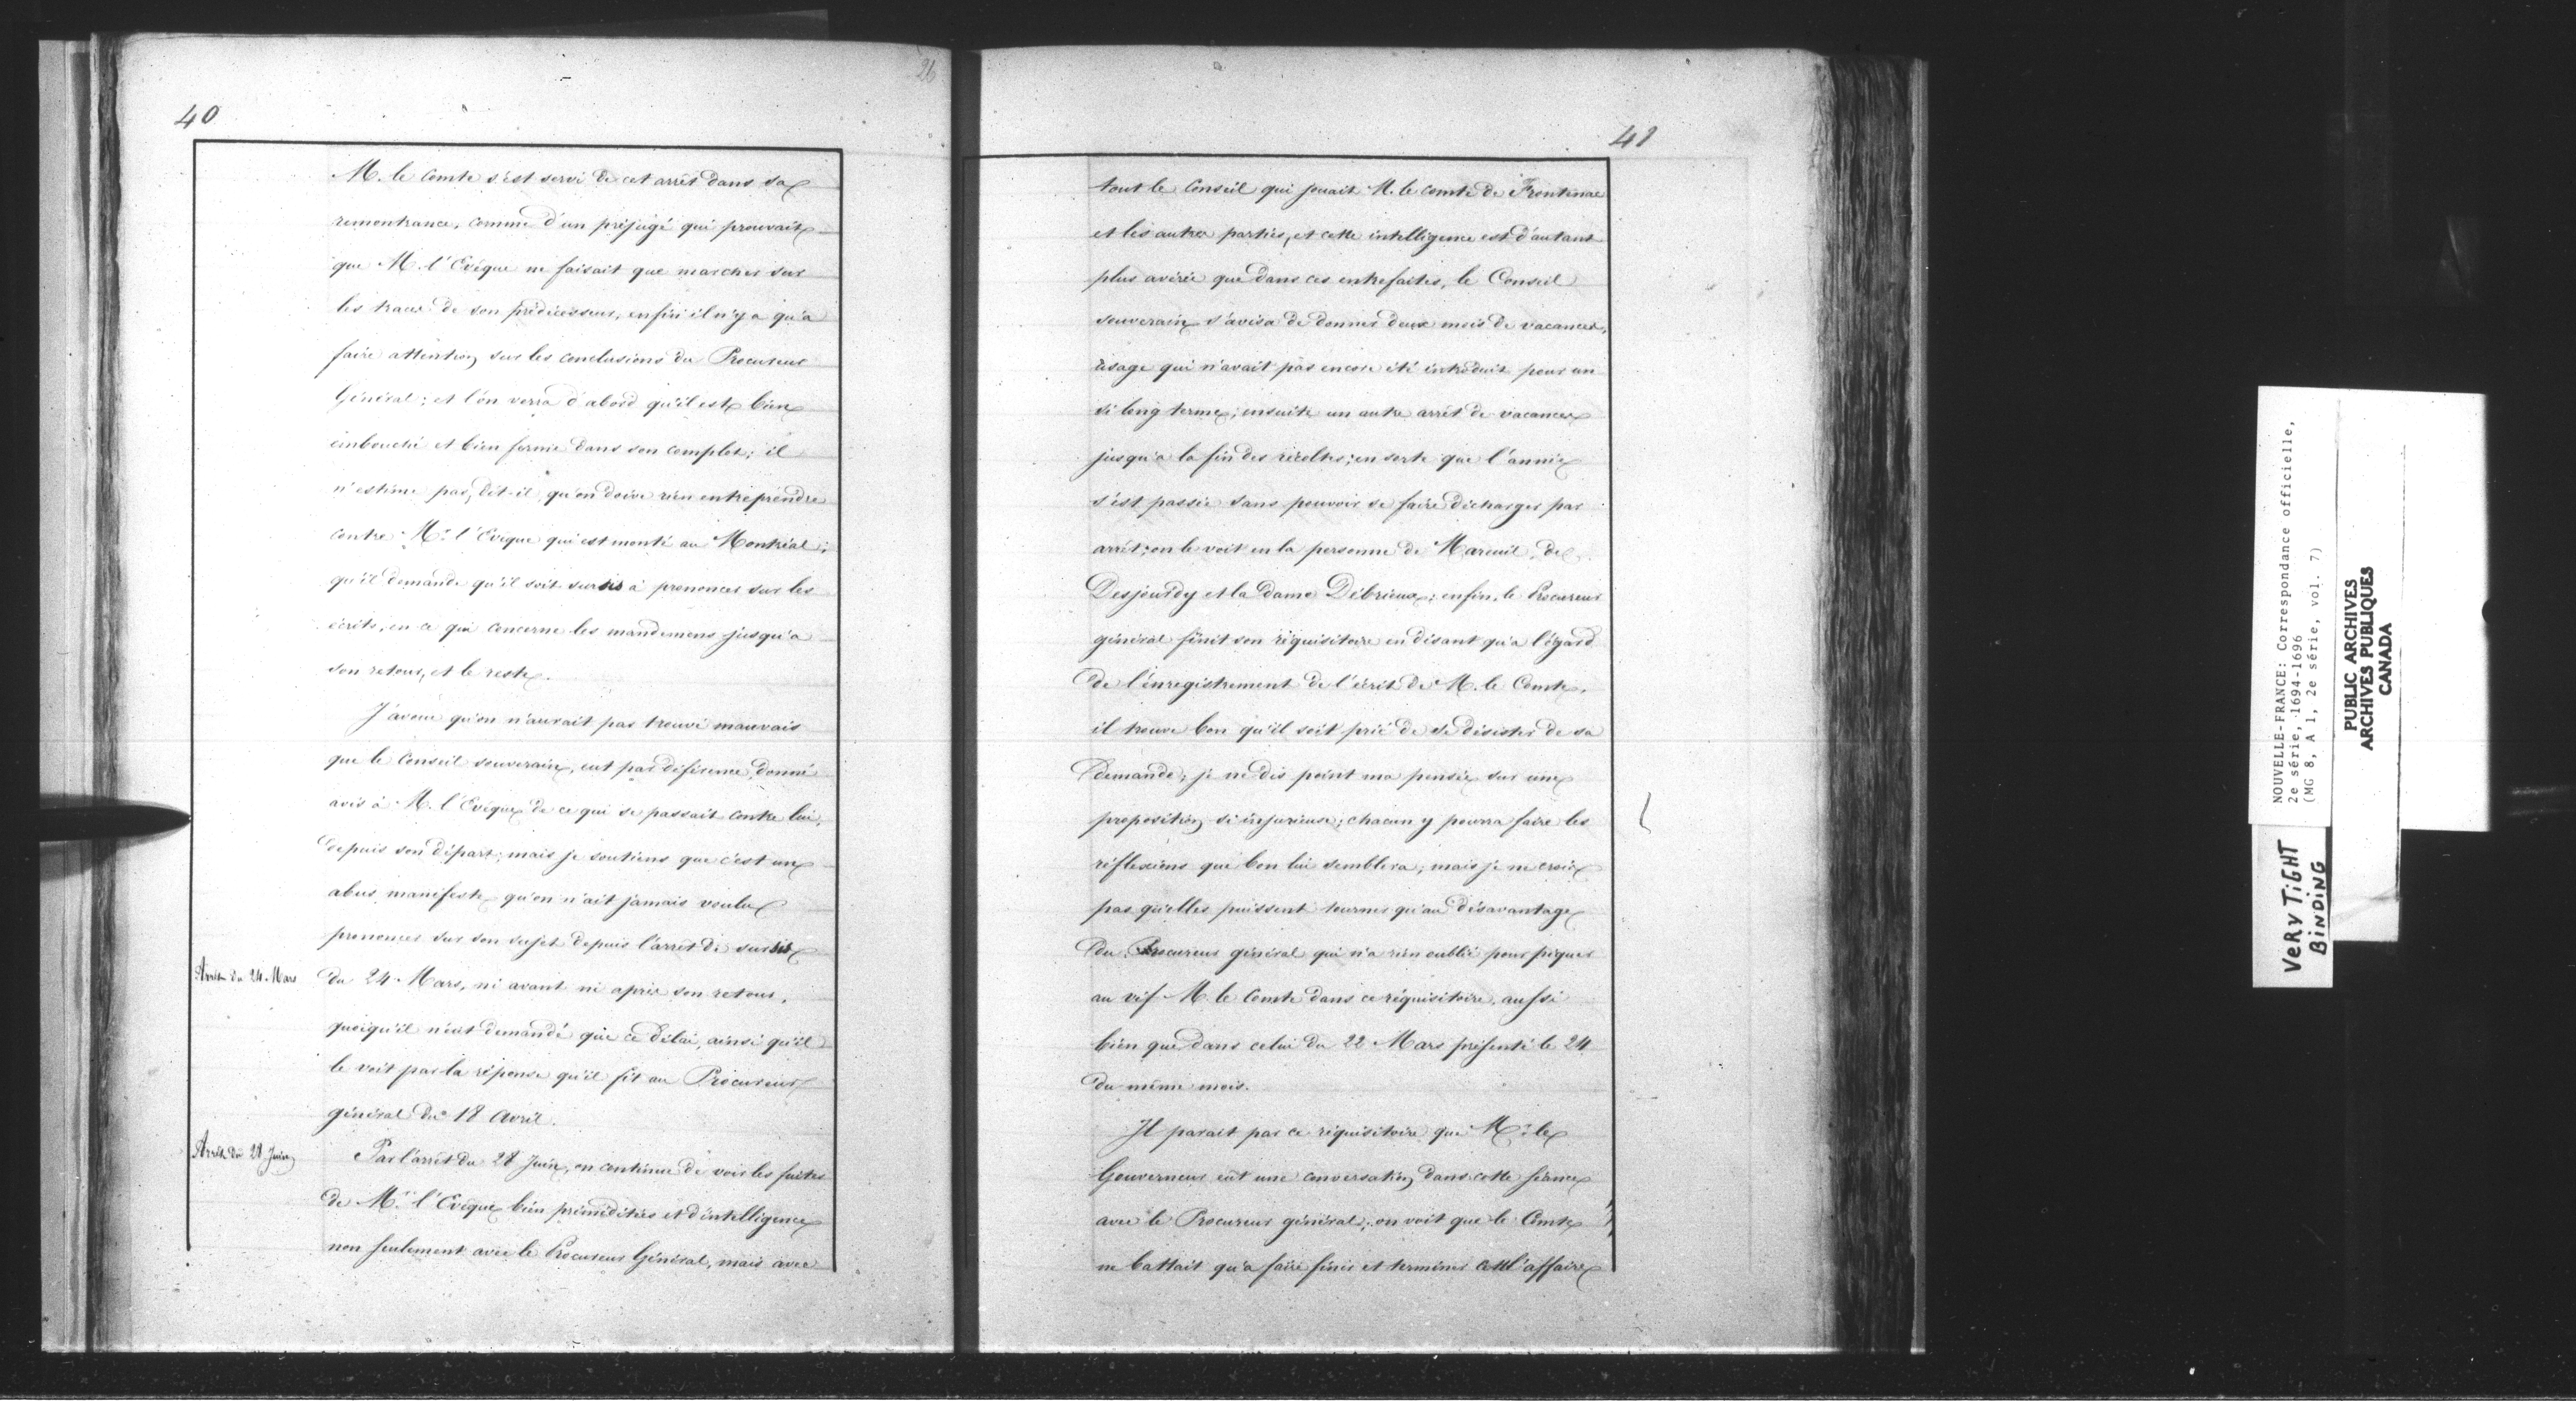 40
26
M. le Comte s'est servi de cet arrêt dans sa
remontrance, comme d'un préjugé qui prouvait
que M. l'Evêque ne faisait que marcher sur
les traces de son prédécesseur, enfin il n'y a qu'à
faire attention sur les conclusions du Procureur
Général; et l'on verra d'abord qu'il est bien
embouché et bien ferme dans son complot; il
n'estime pas, dit-il, qu'on doive rien entreprendre
contre Mr. l'Evêque qui est monté au Montréal;
qu'il demande qu'il soit sursis à prononcer sur les
écrits, en ce qui concerne les mandemens jusqu'à
son retour, et le reste.
J'avoue qu'on n'aurait pas trouvé mauvais
que le Conseil souverain, eut par déférence, donné
avis à M. l'Evêque de ce qui se passait contre lui,
depuis son départ; mais je soutiens que c'est un
abus manifeste qu'on n'ait jamais voulu
prononcer sur son sujet depuis l'arrêt de sursis
Arrêt du 24 Mars
du 24 Mars, ni avant ni après son retour,
quoiqu'il n'eut demandé que ce délai, ainsi qu'il
le voit par la réponse qu'il fit au Procureur
général du 18 Avril.
Arrêt du 28 Juin
Par l'arrêt du 28 Juin, on continue de voir les fuites
de Mr. l'Evêque bien préméditées et d'intelligence
non seulement avec le Procureur Général, mais avec
41
tout le Conseil qui jouait M. le comte de Frontenac
et les autres parties, et cette intelligence est d'autant
plus avérée que dans ces entrefaites, le Conseil
souverain s'avisa de donner deux mois de vacances,
usage qui n'avait pas encore été introduit pour un
si long terme; ensuite un autre arrêt de vacances
jusqu'à la fin des récoltes; en sorte que l'année
s'est passée sans pouvoir se faire décharger par
arrêt; on le voit en la personne de Mareuil, de
Desjourdy et la dame Débrieux; enfin, le Procureur
général finit son réquisitoire en disant qu'à l'égard
de l'enregistrement de l'écrit de M. le Comte,
il trouve bon qu'il soit prié de se désister de sa
demande; je ne dis point ma pensée sur une
proposition si injurieuse; chacun y pourra faire les
réflexions que bon lui semblera; mais je ne crois
pas qu'elles puissent tourner qu'au désavantage
du Procureur général qui n'a rien oublié pour piquer
au vif M. le Comte dans ce réquisitoire, aussi
bien que dans celui du 22 Mars présenté le 24
du même mois.
Il parait par ce réquisitoire que Mr. le
Gouverneur eût une conversation dans cette séance
avec le Procureur général; on voit que le Comte
ne battait qu'à faire finir et terminer cette affaire
NOUVELLE-FRANCE: Correspondance officielle,
2e série, 1694-1696
(MG 8, A 1, 2e série, vol. 7)
PUBLIC ARCHIVES
ARCHIVES PUBLIQUES
CANADA
VERY TIGHT
BINDING